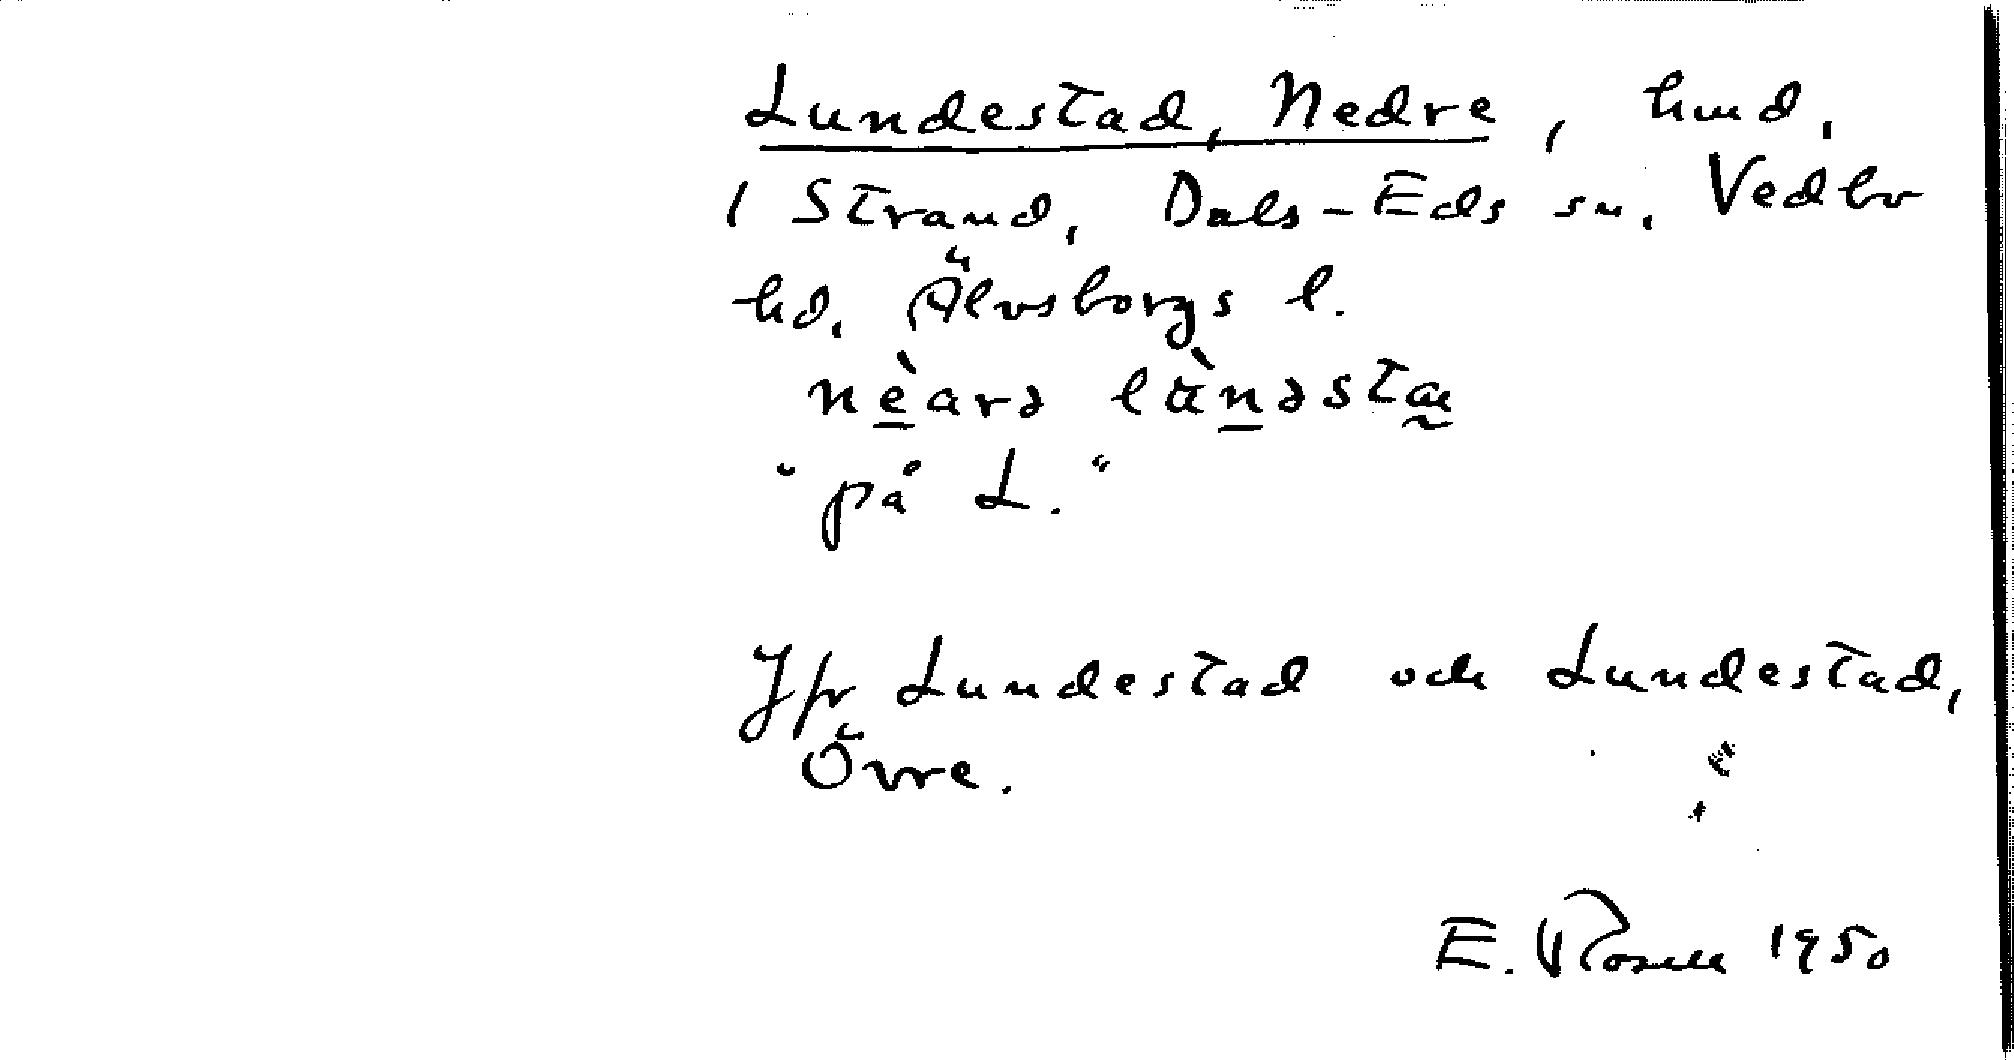 Lundestad, Nedre, hmd,
i Strand, Dals-Eds sn. Vedbo
hd. Älvsborgs l.
"på L."
Jfr Lundestad och Lundestad,
Övre.
E. Rosell 1950